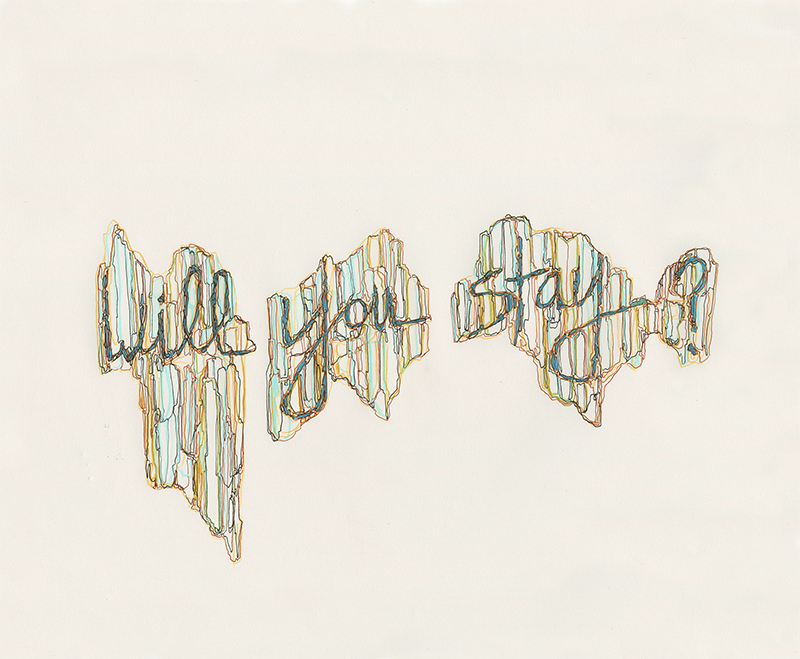 Will you stay?